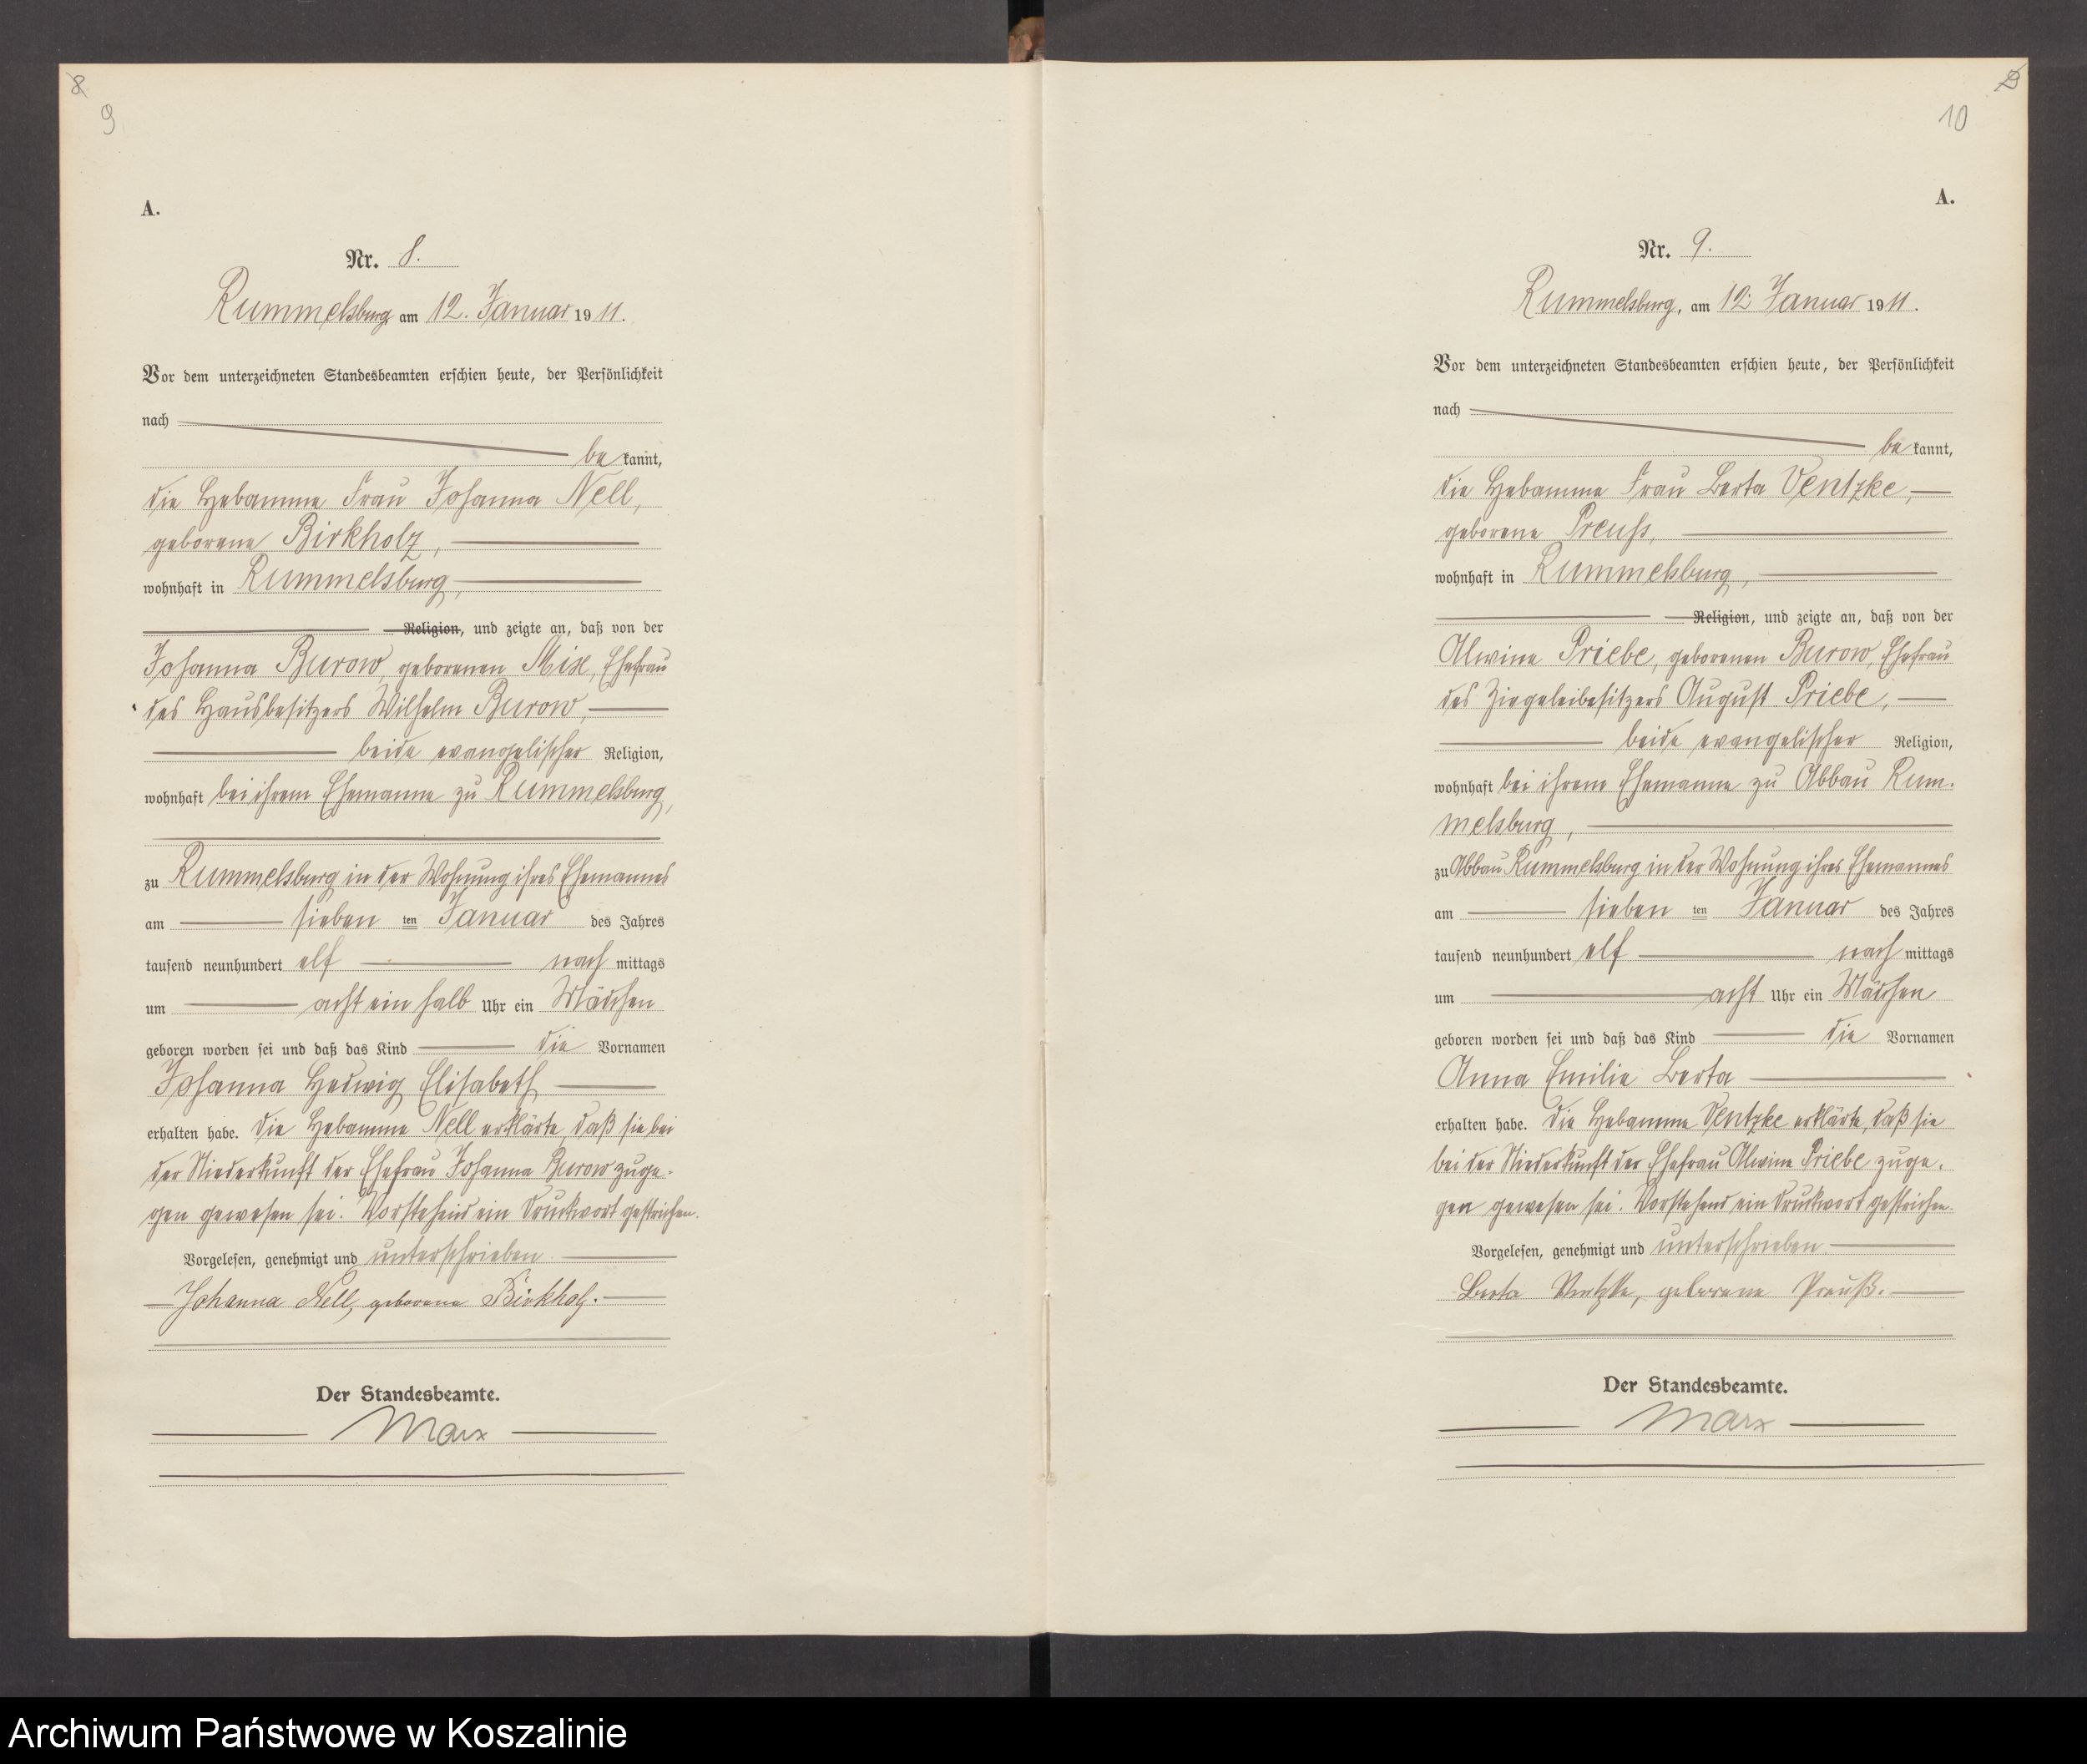 8
9
A.
Nr. 8.
Rummelsburg am 12. Januar 1911.
Vor dem unterzeichneten Standesbeamten erschien heute, der Persönlichkeit
nach
bekannt,
die Hebamme Frau Johanna Nell,
geborene Birkholz,
wohnhaft in Rummelsburg,
Religion, und zeigte an, daß von der
Johanna Burow, geborenen Mix, Ehefrau
des Hausbesitzers Wilhelm Burow,
beide evangelischer Religion,
wohnhaft bei ihrem Ehemanne zu Rummelsburg,
zu Rummelsburg in der Wohnung ihres Ehemannes
am sieben ten Januar des Jahres
tausend neunhundert elf nach mittags
um acht ein halb Uhr ein Mädchen
geboren worden sei und daß das Kind die Vornamen
Johanna Hedwig Elisabeth
erhalten habe. Die Hebamme Nell erklärte, daß sie bei
der Niederkunft der Ehefrau Johanna Burow zuge-
gen gewesen sei. Vorstehend ein Druckwort gestrichen.
Vorgelesen, genehmigt und unterschrieben.
Johanna Nell, geborene Birkholz.
Der Standesbeamte.
Marx
10
A.
Nr. 9.
Rummelsburg, am 12. Januar 1911.
Vor dem unterzeichneten Standesbeamten erschien heute, der Persönlichkeit
nach
bekannt,
die Hebamme Frau Berta Ventzke,
geborene Preuß,
wohnhaft in Rummelsburg,
Religion, und zeigte an, daß von der
Alwine Priebe, geborenen Burow, Ehefrau
des Ziegeleibesitzers August Priebe,
beide evangelischer Religion,
wohnhaft bei ihrem Ehemanne zu Abbau Rum-
melsburg,
zu Abbau Rummelsburg in der Wohnung ihres Ehemannes
am sieben ten Januar des Jahres
tausend neunhundert elf nach mittags
um acht Uhr ein Mädchen
geboren worden sei und daß das Kind die Vornamen
Anna Emilie Berta
erhalten habe. Die Hebamme Ventzke erklärte, daß sie
bei der Niederkunft der Ehefrau Alwine Priebe zuge-
gen gewesen sei. Vorstehend ein Druckwort gestrichen.
Vorgelesen, genehmigt und unterschrieben.
Berta Ventzke, geborene Preuß.
Der Standesbeamte.
Marx
Archiwum Państwowe w Koszalinie